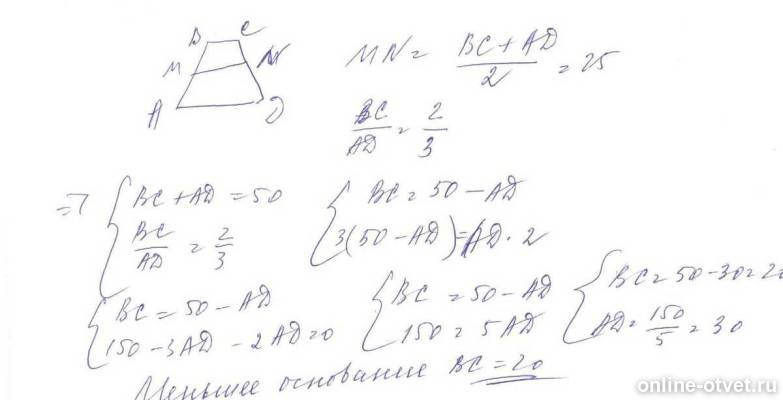 B C
M N
A D
MN = (BC + AD)/2 = 25
BC/AD = 2/3
=> { BC + AD = 50
BC/AD = 2/3
{ BC = 50 - AD
3(50 - AD) = AD · 2
{ BC = 50 - AD
150 - 3AD - 2AD = 0
{ BC = 50 - AD
150 = 5AD
{ BC = 50 - 30 = 20
AD = 150/5 = 30
Меньшее основание BC = 20
online-otvet.ru